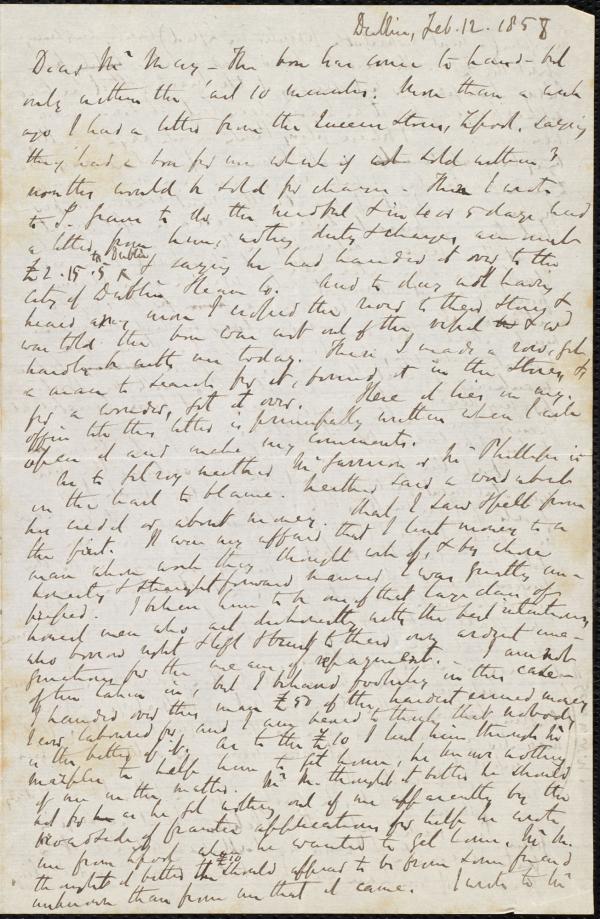 Dublin, Feb. 12. 1858
Dear Mr May - The box has come to hand - but
only within the last 10 minutes. More than a week
ago I had a letter from the Queen Stores, Lpool, saying
they had a box for me which if not sold within 3
months would be sold for charges. Then I wrote
to to do the needful & in 4 or 5 days had
a letter from him, noting duty & charges, amount
£2.15.5 & saying he had handed it over to the
to Dublin
City of Dublin Steam Co. And to day not having
heard any more I walked the river to their Stores &
was told the box was not out of the vessel & wd
hardly be with me today. There I made a row, got
a man to search for it, found it in the Stores, &
for a wonder, got it over. Here it lies in my
office till this letter is principally written when I will
open it and make my comments.
As to neither Mr Garrison or Mr Phillips is
in the least to blame. Neither said a word about
his creed or about money. That I saw myself from
the first. It was my affair that I lent money to a
man whose work they thought well of, & by whose
honesty & straightforward manner I was greatly im-
pressed. I believe him to be one of that large class of
honest men who act dishonestly with the best intentions,
who borrow right & left & trust to their own ardent ima-
ginations for the means of repayment. - I am not
often taken in, but I behaved foolishly in this case -
I handed over this man £50 of the hardest earned money
I ever laboured for, and I am vexed to think that nobody
is the better of it. As to the £10 I lent him through Mr
to help him to get home, he knows nothing
of me in the matter. Mr M. thought it better he should
not do so as he got nothing out of me apparently by the
broadside of frantic applications for help he wrote
me from Lpool when he wanted to get home. Mr M.
thought it better the £10 should appear to be from some friend
unknown than from me that it came. I wrote to Mr